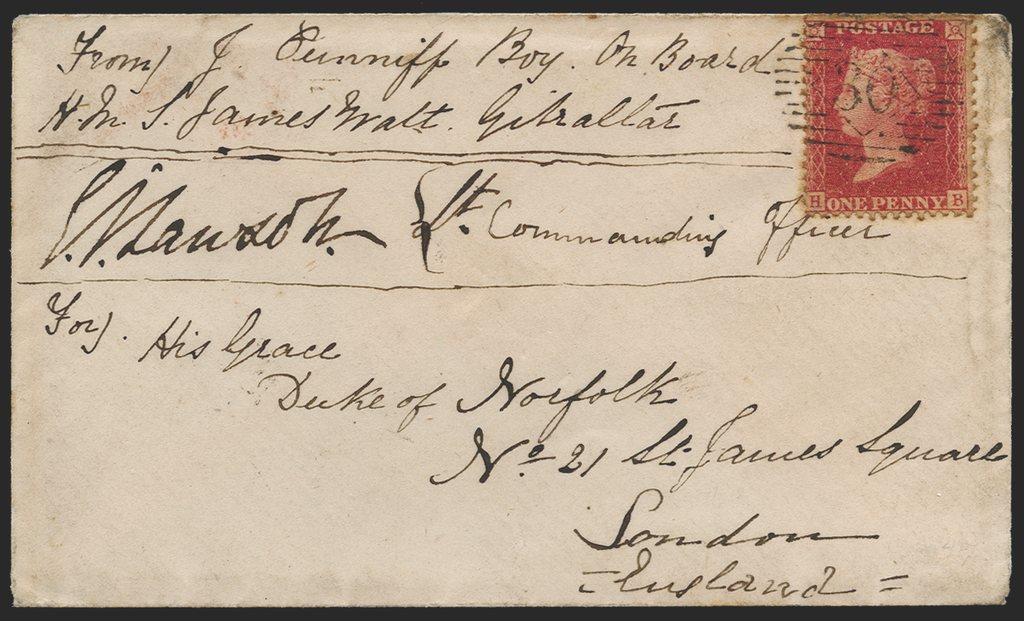 From J. Cunniff Boy. On Board
H.M. S. James Watt. Gibraltar
Lawson. Lt. Commanding Officer
For. His Grace
Duke of Norfolk
No 21 St. James Square
London
= England =
POSTAGE
H ONE PENNY B